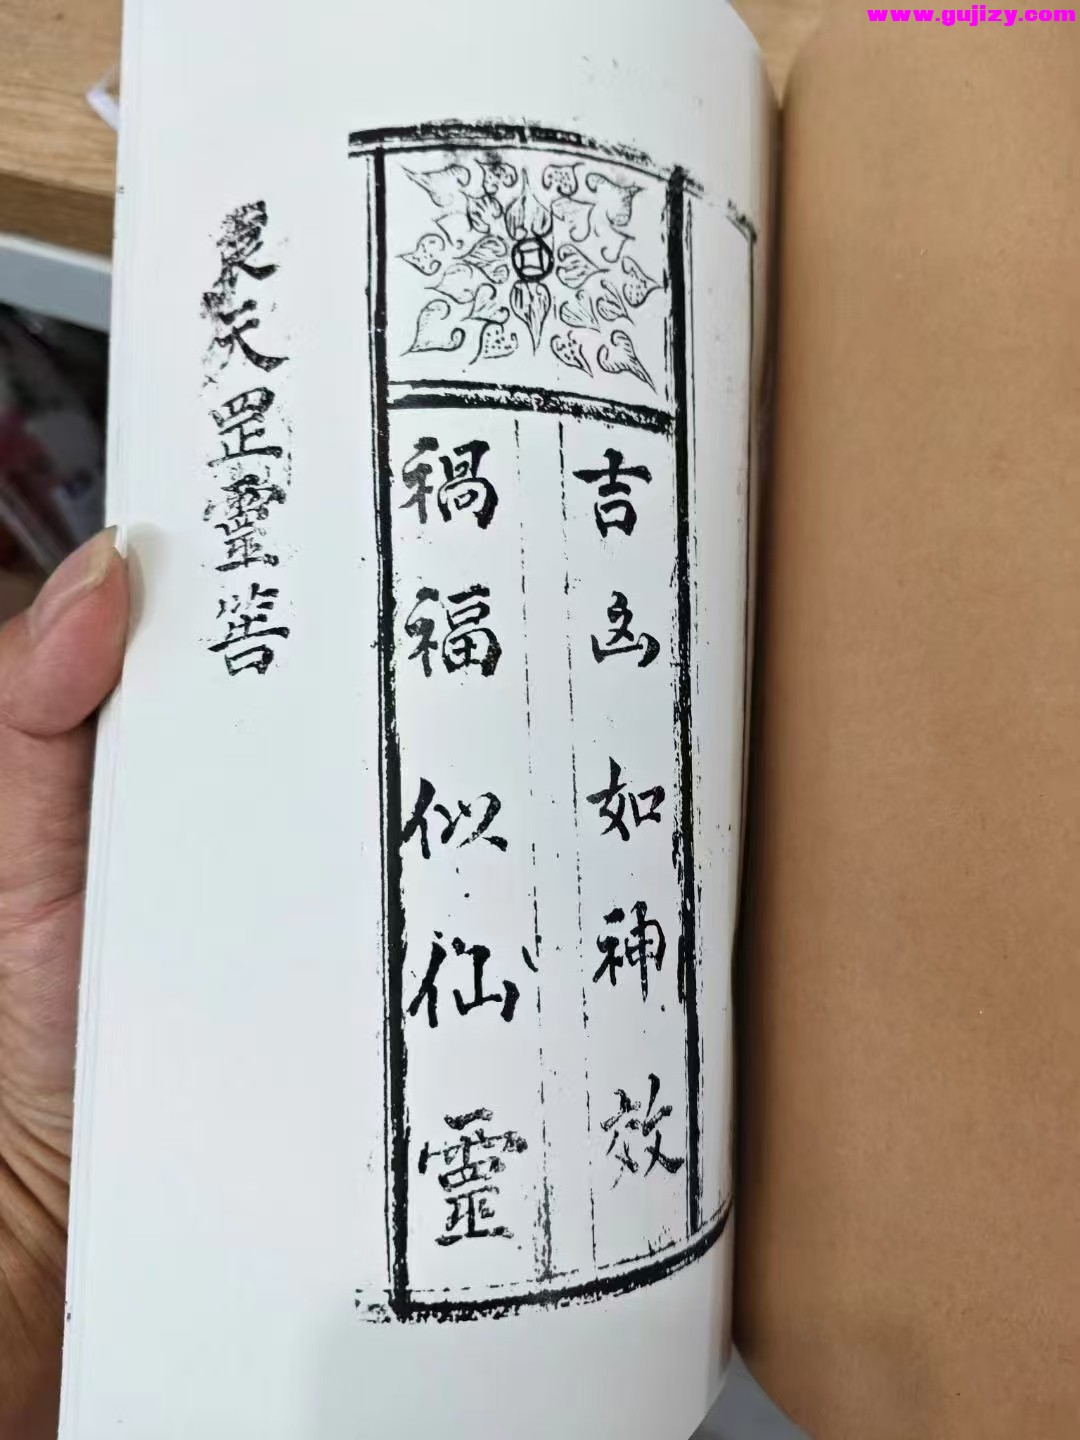 www.gujizy.com
吉凶如神效
禍福似仙靈
袁天罡靈筶